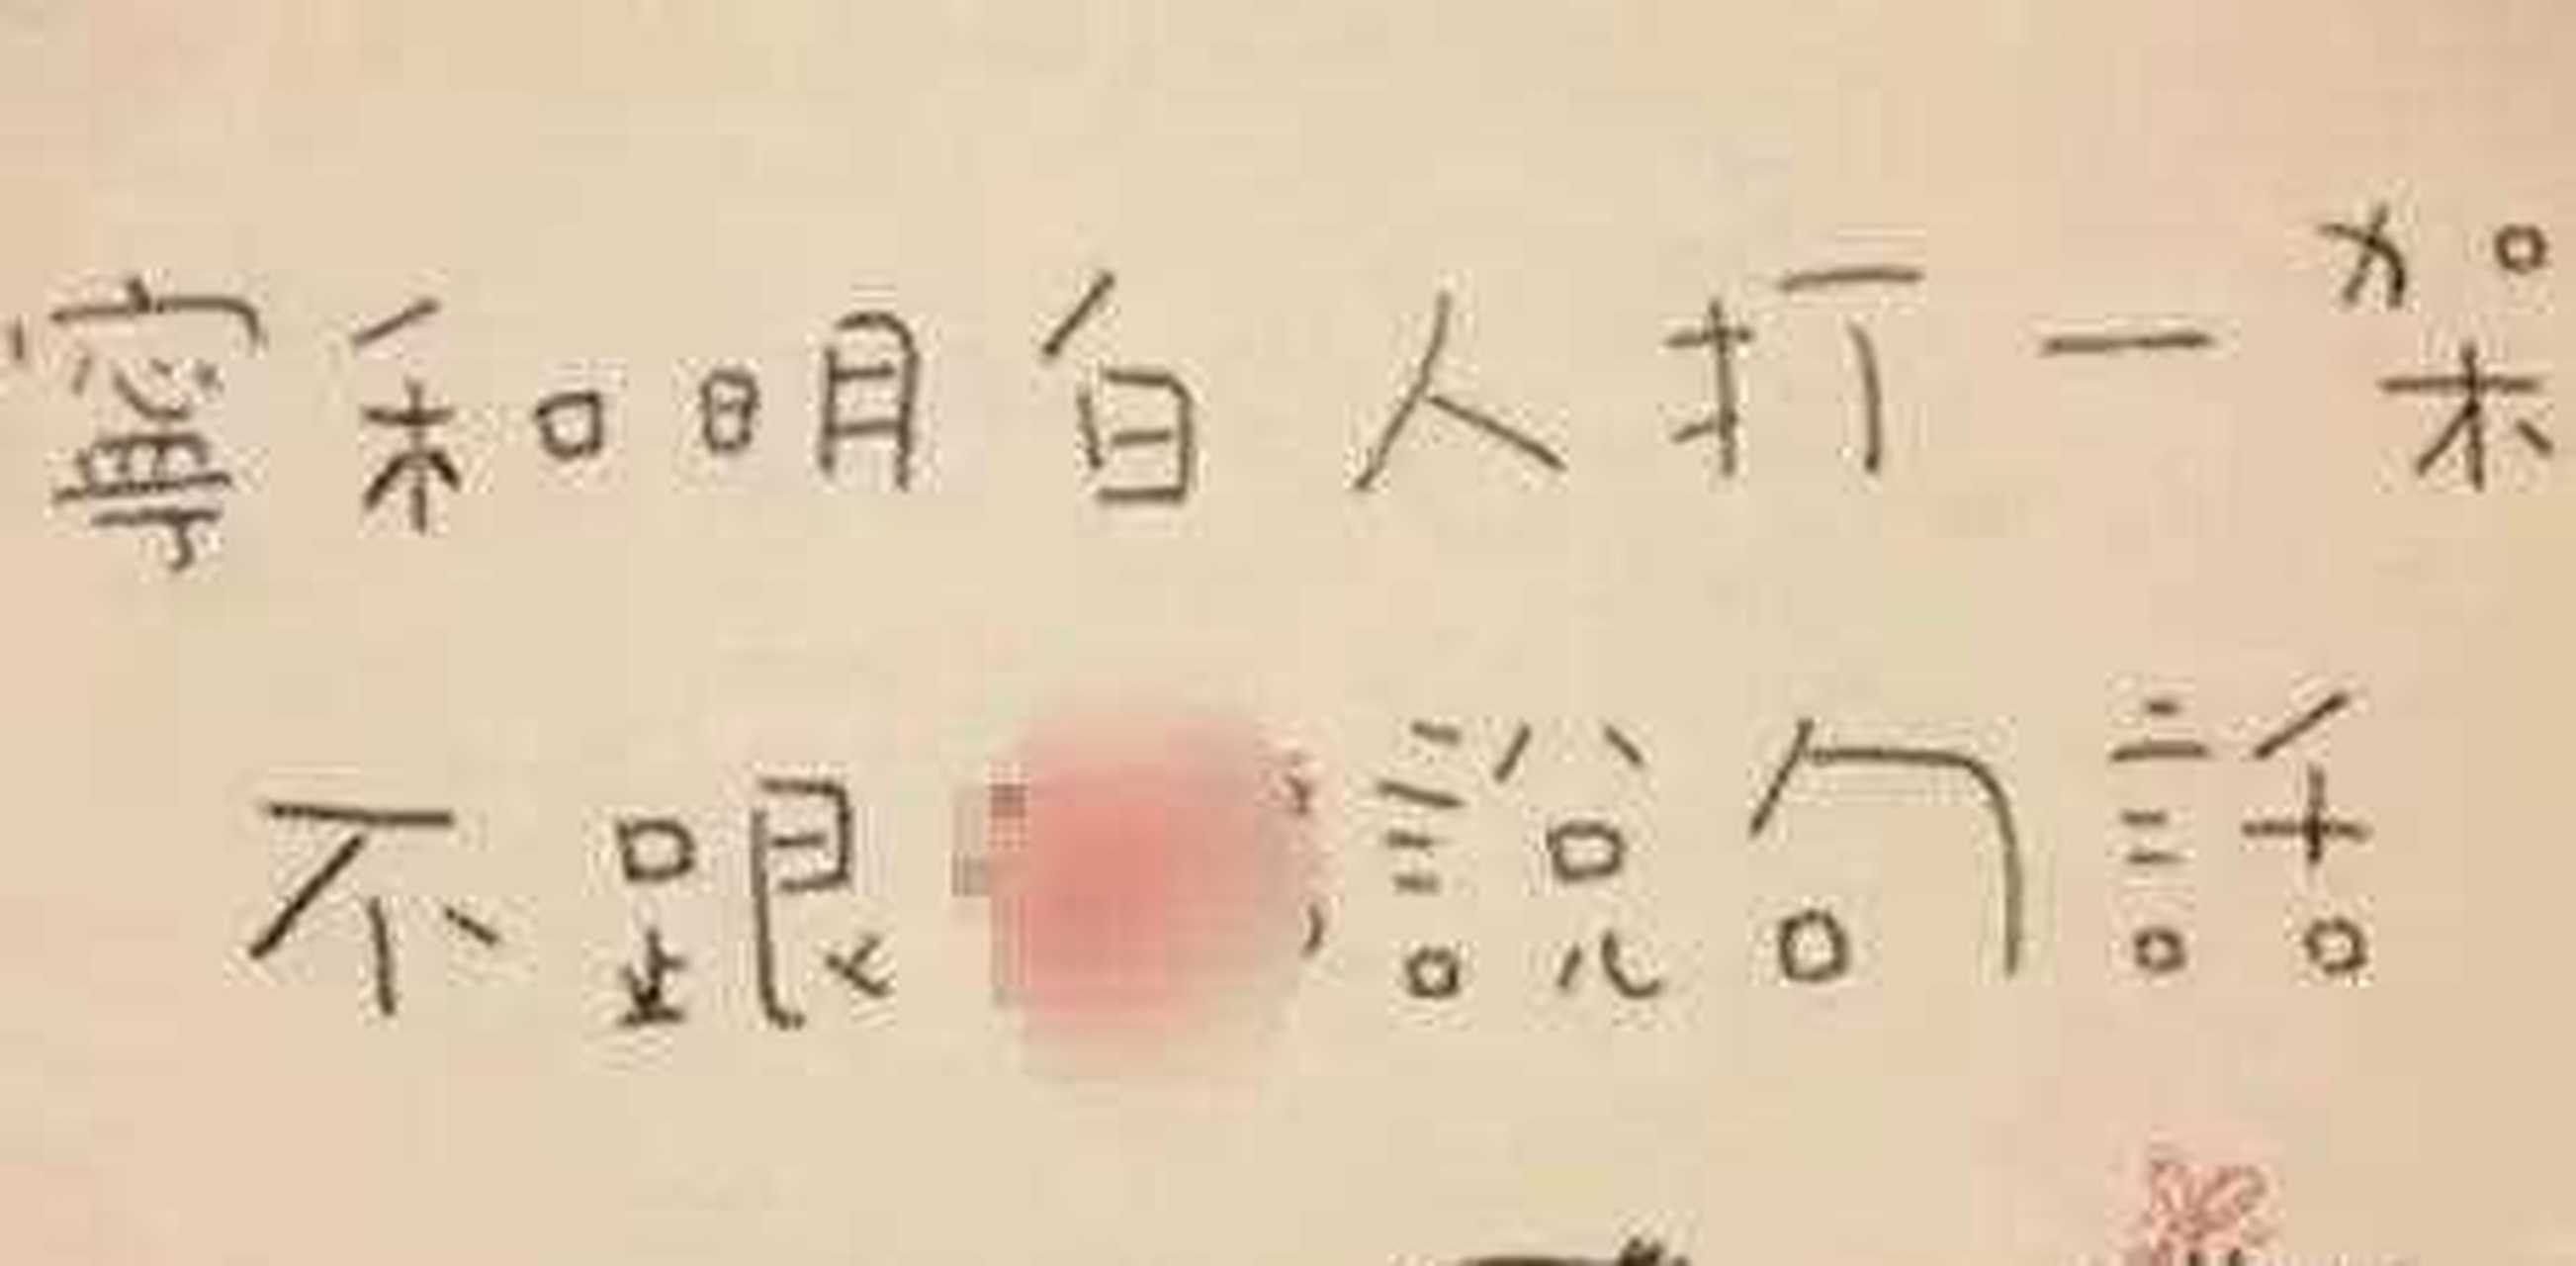 寧和明白人打一架
不跟 說句話